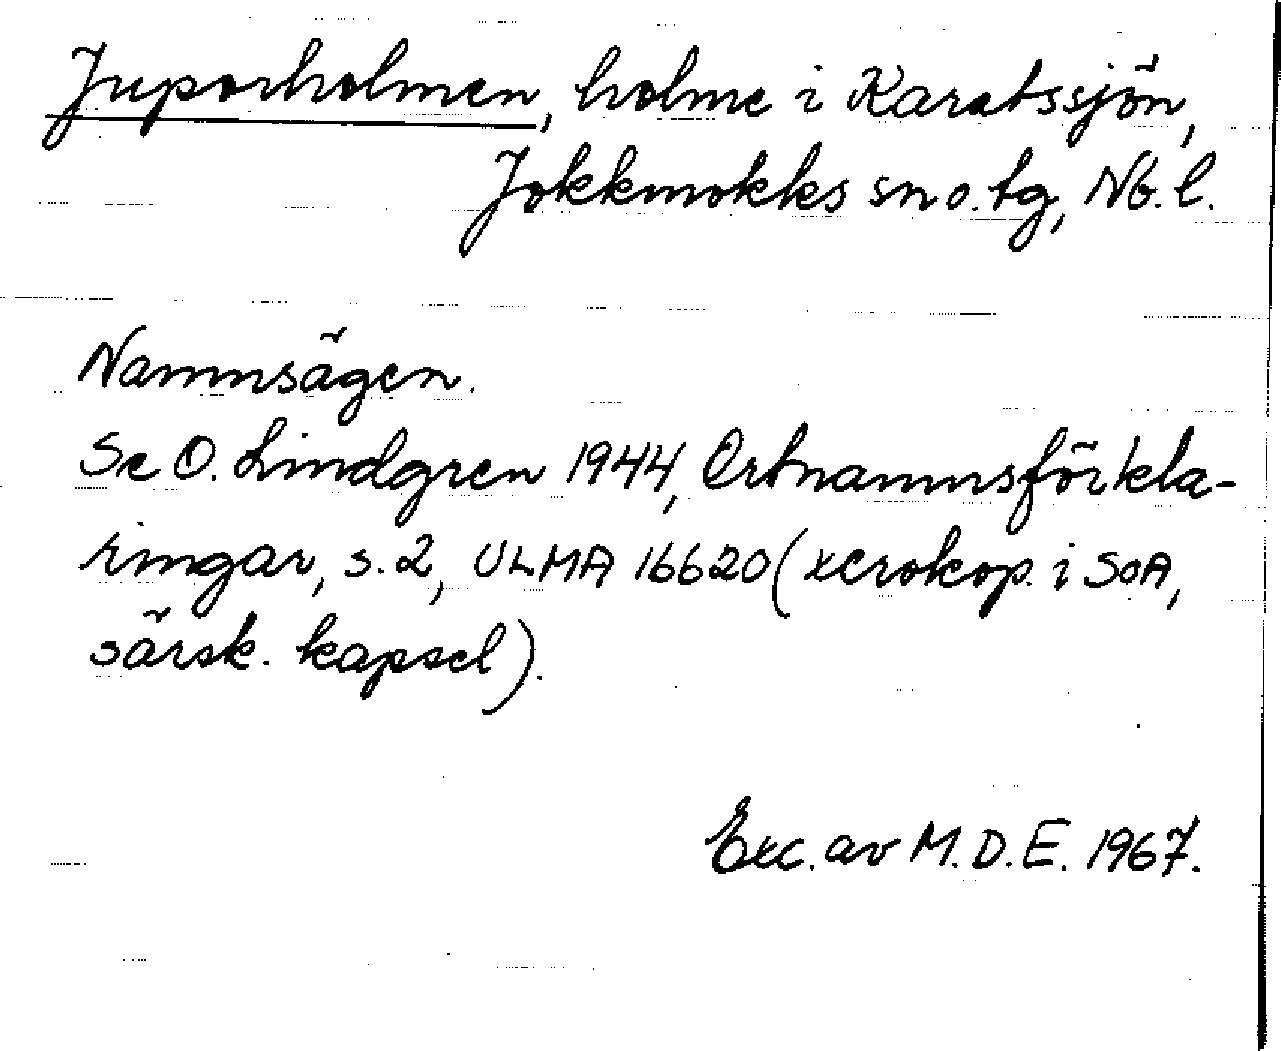 Juporholmen, holme i Karatssjön,
Jokkmokks sn o. tg, Nb. l.
Namnsägen.
Se O. Lindgren 1944, Ortnamnsförkla-
ringar, s. 2, ULMA 16620 (xerokop. i SOA,
särsk. kapsel).
Exc. av M.D.E. 1967.